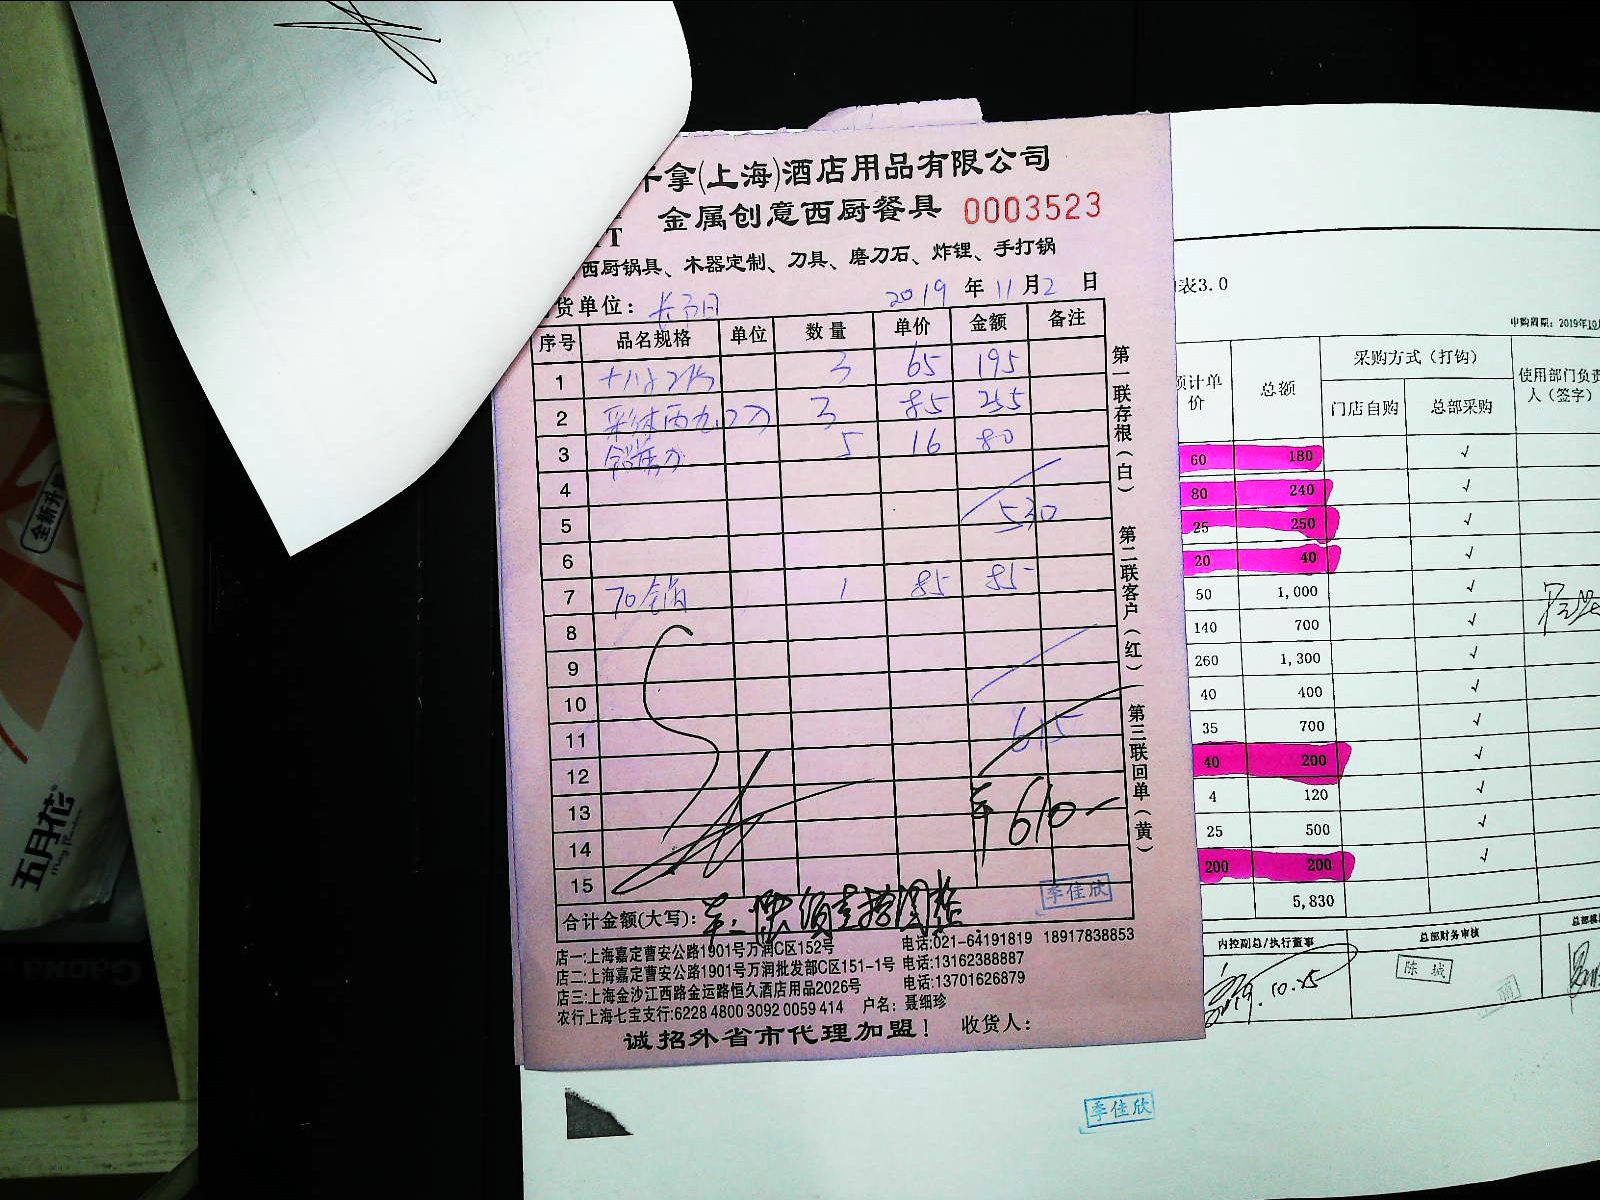 拿(上海)酒店用品有限公司
金属创意西厨餐具 0003523
西厨锅具、木器定制、刀具、磨刀石、炸锂、手打锅
货单位：
2019 年 11 月 2 日
序号 品名规格 单位 数量 单价 金额 备注
1 3 65 195
2 3 85 255
3 5 16 80
4
5 530
6
7 70 1 85 85-
8
9
10
11 615
12
13 ¥610-
14
15
李佳欣
合计金额(大写)：
店一:上海嘉定曹安公路1901号万润C区152号 电话:021-64191819 18917838853
店二:上海嘉定曹安公路1901号万润批发部C区151-1号 电话:13162388887
店三:上海金沙江西路金运路恒久酒店用品2026号 电话:13701626879
农行上海七宝支行:6228 4800 3092 0059 414 户名：聂细珍
诚招外省市代理加盟！ 收货人：
第一联存根(白) 第二联客户(红) 第三联回单(黄)
表3.0
申购周期：2019年10
预计单价 总额 采购方式（打钩） 使用部门负责人（签字）
门店自购 总部采购
60 180 √
80 240 √
25 250 √
20 40 √
50 1,000 √
140 700 √
260 1,300 √
40 400 √
35 700 √
40 200 √
4 120 √
25 500 √
200 200 √
5,830
内控副总/执行董事 总部财务审核
陈城
李佳欣
全新升级
五月花